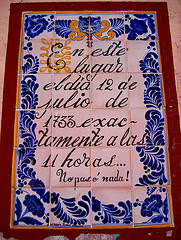 En este
lugar
el día 12 de
julio de
1733 exac-
tamente a las
11 horas...
No pasó nada!